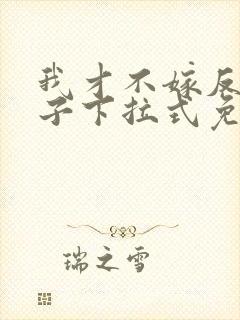 我才不嫁反
子下拉式免
瑞之雪